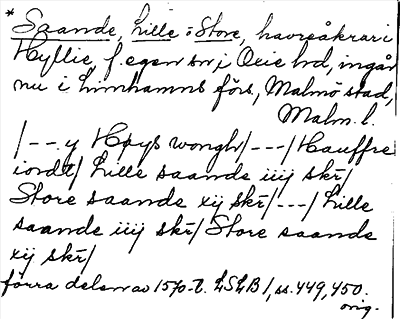 * Saande, Lille o Store, havreåkrar i
Hyllie, f. egen sn, i Oxie hd, ingår
nu i Limhamns förs, Malmö stad,
Malm. l.
/--y Høys wongh/---/Hauffre
iordt/ Lille saande iiij skr/
Store saande xij skr/---/Lille
saande iiij skr/ Store saande
xij skr/
förra delen av 1570-t. LSLB 1, ss. 449, 450.
orig.